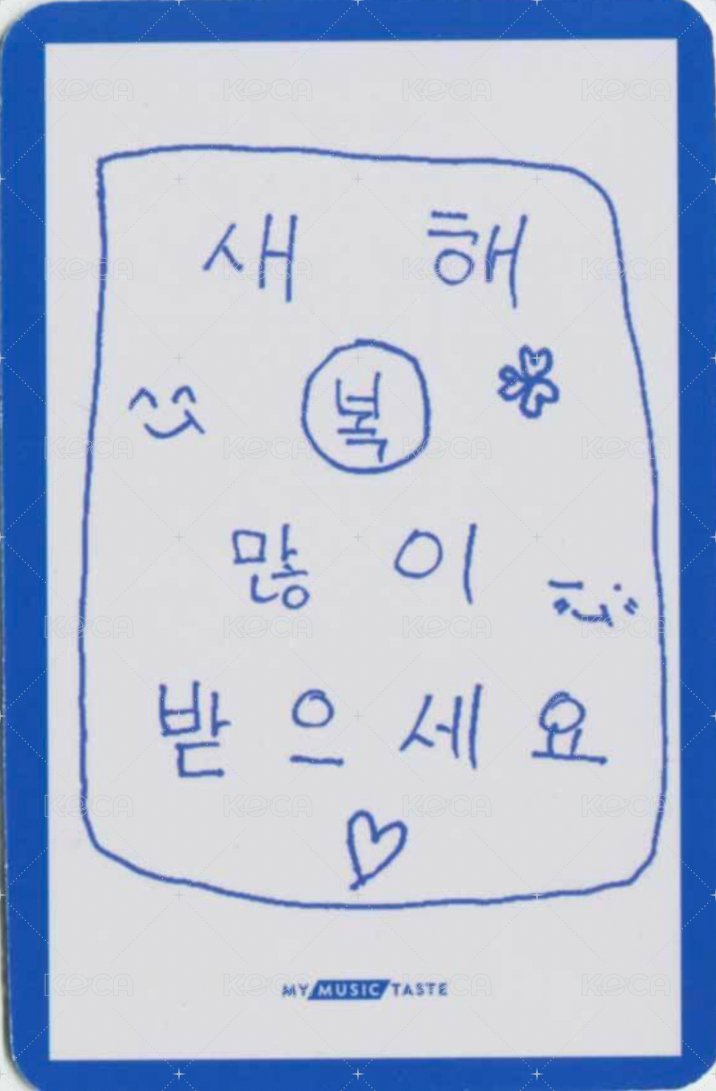 새 해
복
많 이
받 으 세 요
MY MUSIC TASTE
KOCA